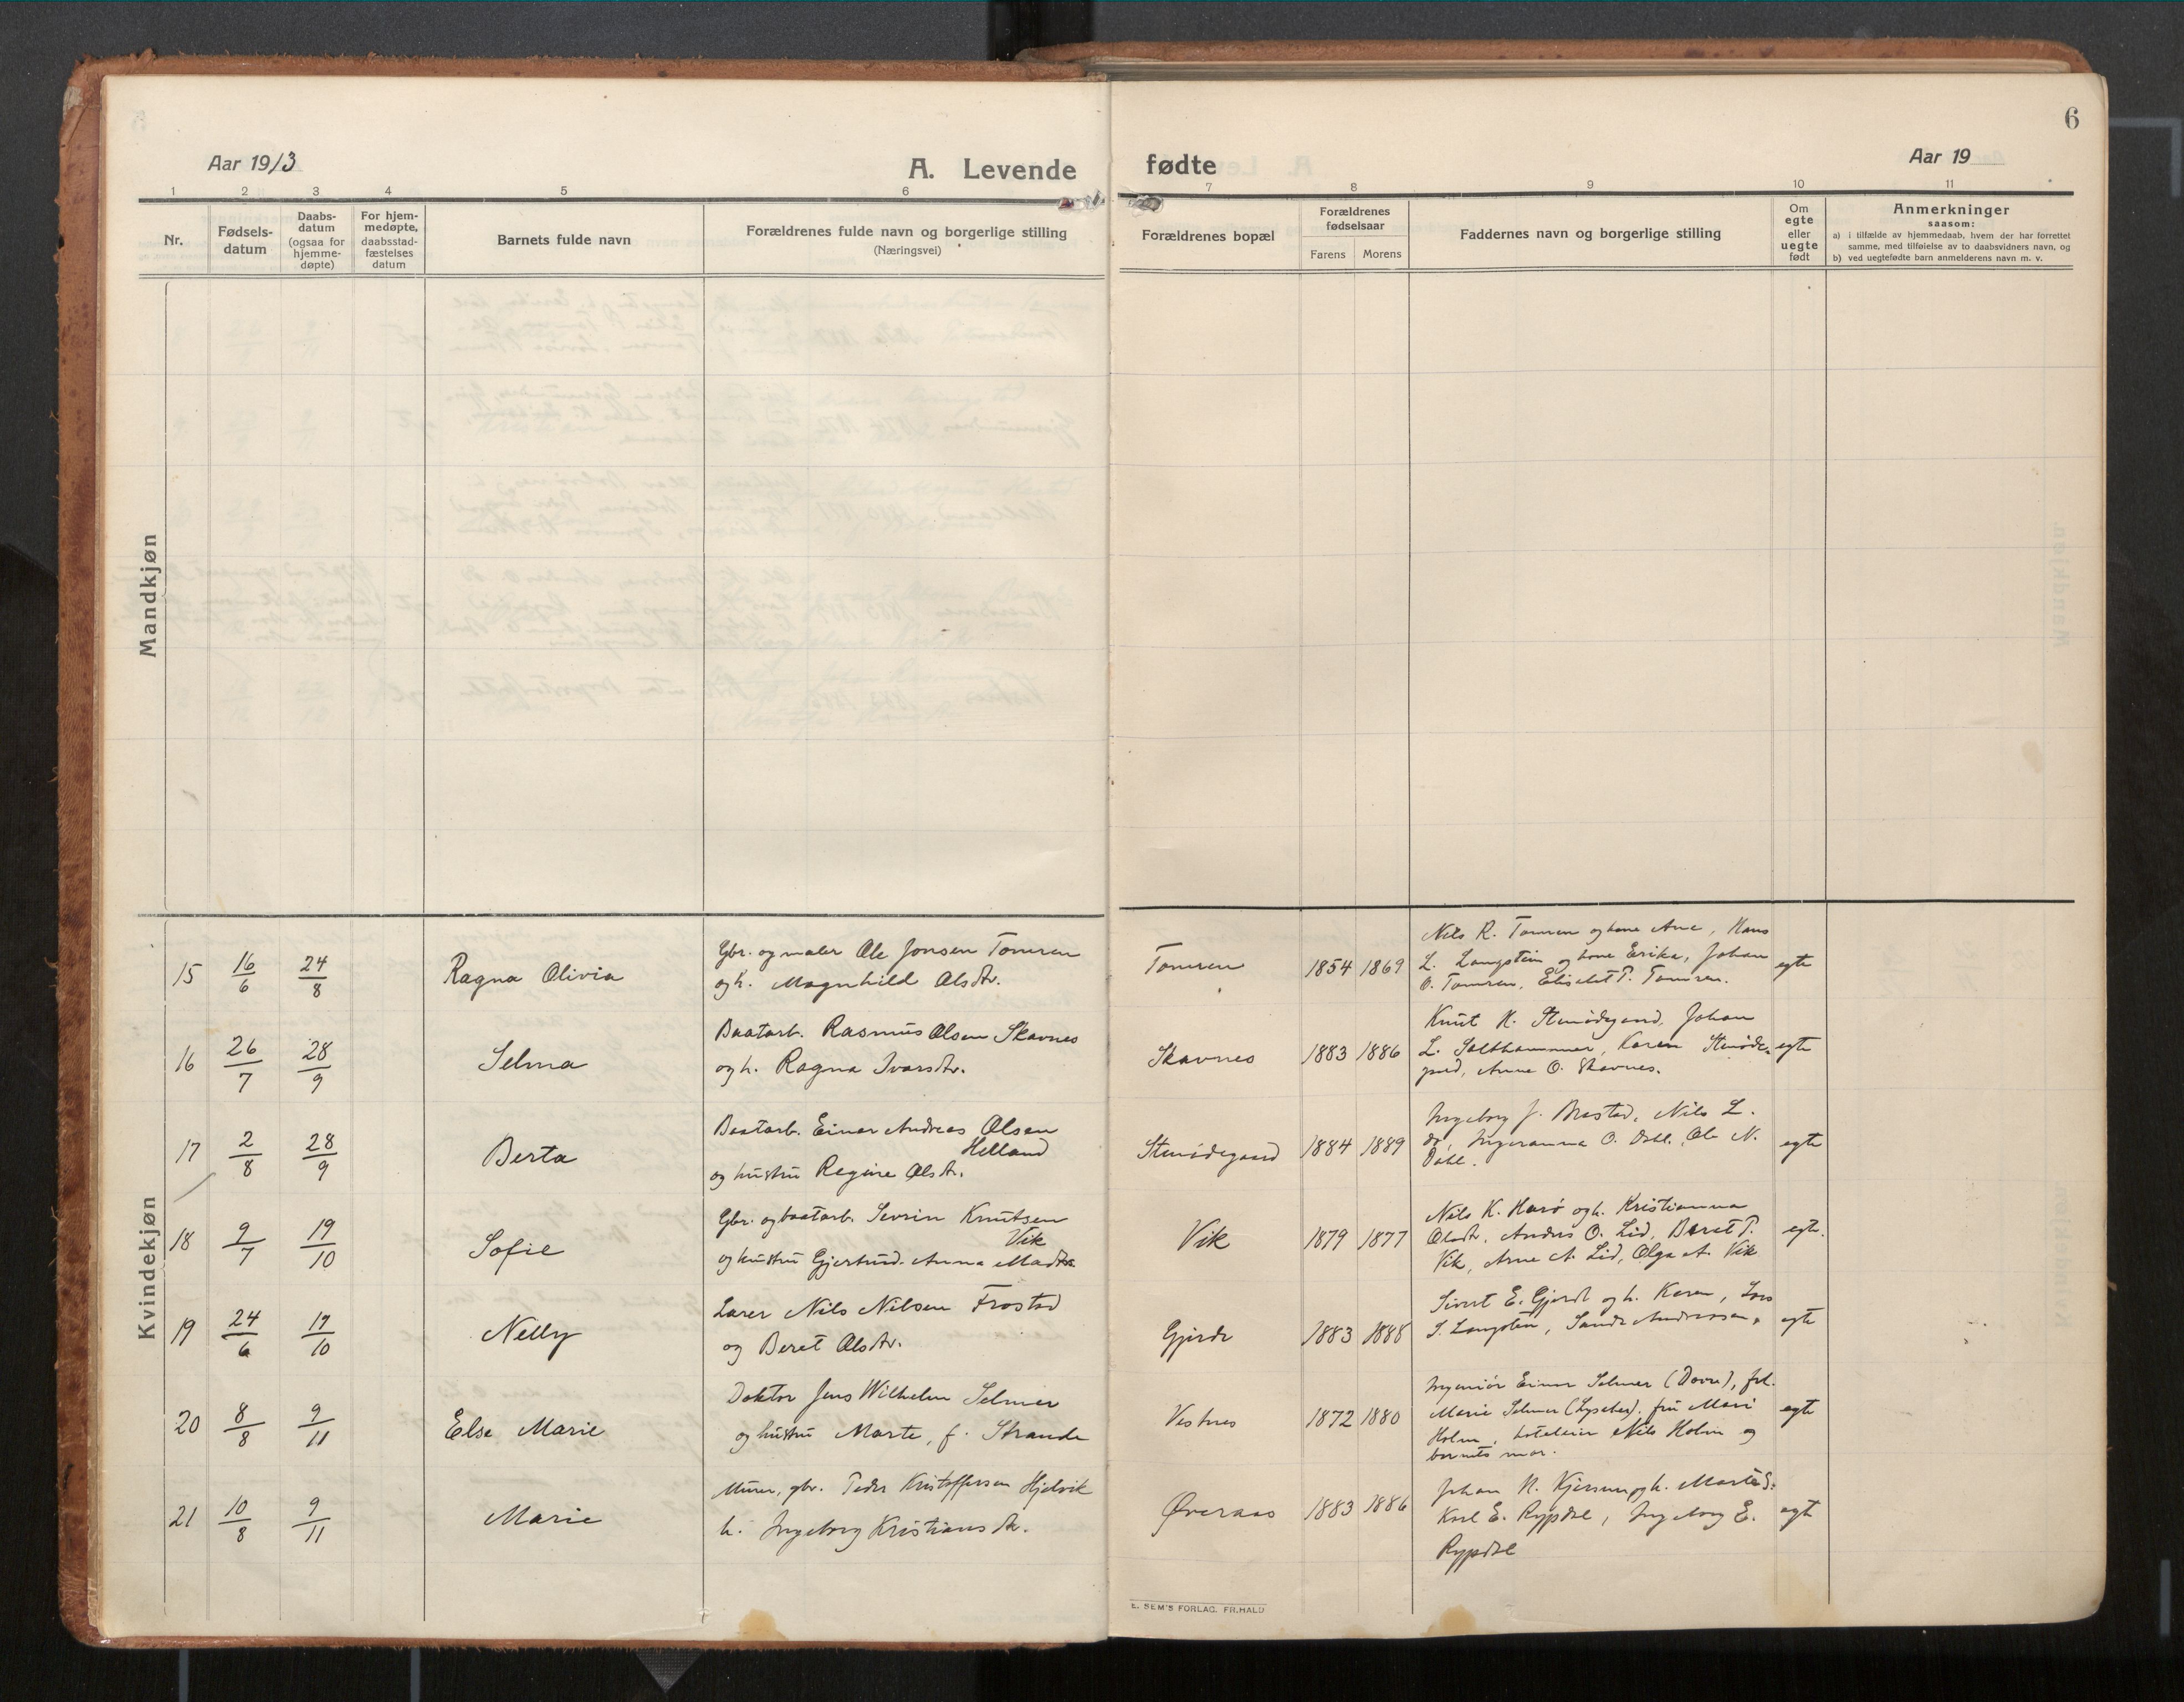 6
Aar 1913
A. Levende
fødte
Aar 19
1 2 3 4 5 6 7 8 9 10 11
Nr.
Fødsels-
datum
Daabs-
datum
(ogsaa for
hjemme-
døpte)
For hjem-
medøpte,
daabsstad-
fæstelses
datum
Barnets fulde navn
Forældrenes fulde navn og borgerlige stilling
(Næringsvei)
Forældrenes bopæl
Forældrenes
fødselsaar
Farens
Morens
Faddernes navn og borgerlige stilling
Om
egte
eller
uegte
født
Anmerkninger
saasom:
a) i tilfælde av hjemmedaab, hvem der har forrettet
samme, med tilføielse av to daabsvidners navn, og
b) ved uegtefødte barn anmelderens navn m. v.
Mandkjøn
Kvindekjøn
15 16/6 24/8 Ragna Olivia
Gbr. og maler Ole Jonsen Tomren
og h. Magnhild Olsdtr.
Tomren 1854 1869
Nils R. Tomren og kone Ane, Hans
L. Langstein og kone Erika, Johan
O. Tomren, Eliset P. Tomren.
egte
16 26/7 28/9 Selma
Baatarb. Rasmus Olsen Skavnes
og h. Ragna Ivarsdtr.
Skavnes 1883 1886
Knut K. Stenødegaard, Johan
L. Salthammer, Karen Stenøde-
gard, Anne O. Skavnes.
egte
17 2/8 28/9 Berta
Baatarb. Einar Andreas Olsen
Helland
og hustru Regine Olsdtr.
Stenødegaard 1884 1889
Ingeborg J. Brastad, Nils L.
do, Ingeranna O. Dahl, Ole N.
Dahl.
egte
18 9/7 19/10 Sofie
Gbr. og baatarb. Sevrin Knutsen
Vik
og hustru Gjertrud Anna Madsdtr.
Vik 1879 1877
Nils K. Harø og h. Kristianna
Olsdtr, Anders O. Lid, Beret P.
Vik, Arne A. Lid, Olga A. Vik
egte.
19 24/6 19/10 Nelly
Lærer Nils Nilsen Frostad
og Beret Olsdtr.
Gjerde 1883 1888
Sivert E. Gjerde og h. Karen, Lars
S. Langsten, Andreassen,
egte
20 8/8 9/11 Else Marie
Doktor Jens Wilhelm Selmer
og hustru Marte, f. Strande
Vestnes 1872 1880
Ingeniør Einar Selmer (Dovre), frk.
Marie Selmer (Lysaker), fru Mari
Holm, hoteleier Nils Holm og
barnets mor.
egte
21 10/8 9/11 Marie
Murer, gbr. Peder Kristoffersen Hjelvik
h. Ingeborg Kristiansdtr.
Øveraas 1883 1886
Johan N. Kjersem og h. Marta S.
Karl E. Rypdal, Ingeborg E.
Rypdal
egte
E. SEM'S FORLAG. FR.HALD